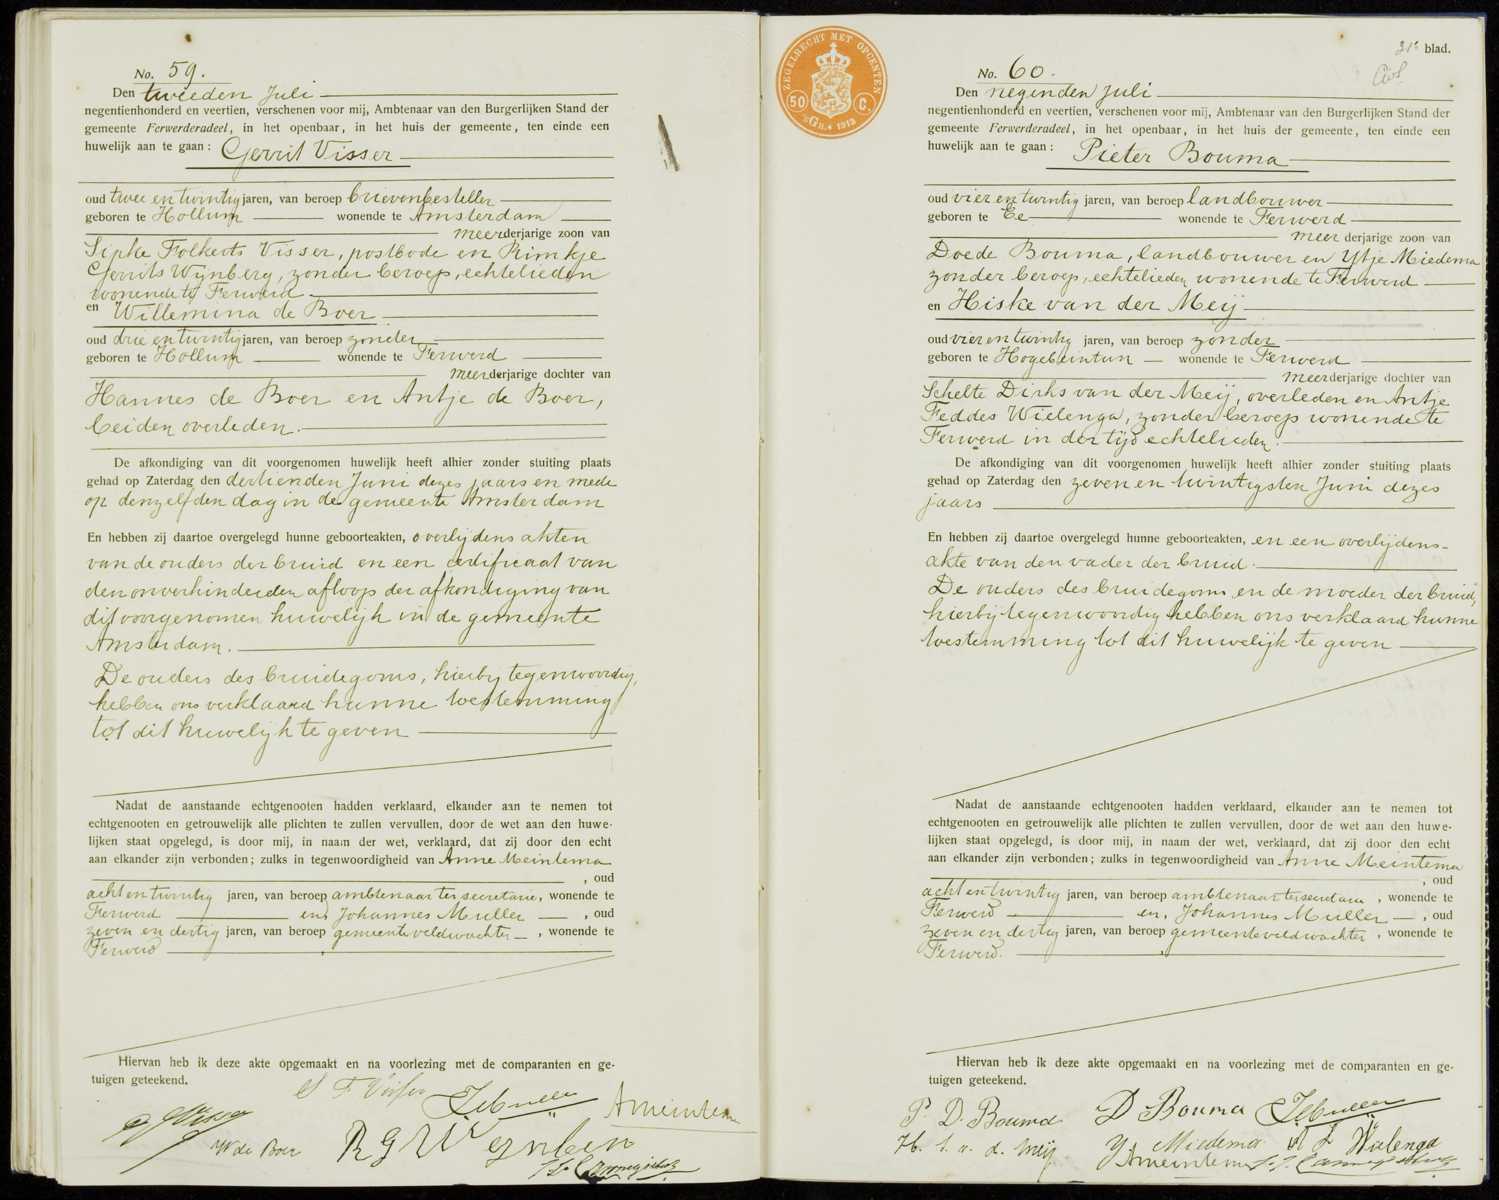 No. 59.
Den tweeden Juli
negentienhonderd en veertien, verschenen voor mij, Ambtenaar van den Burgerlijken Stand der
gemeente Ferwerderadeel, in het openbaar, in het huis der gemeente, ten einde een
huwelijk aan te gaan: Gerrit Visser
oud twee en twintig jaren, van beroep brievenbesteller
geboren te Hollum wonende te Amsterdam
meerderjarige zoon van
Sipke Folkerts Visser, postbode en Rimkje
Gerrits Wijnberg, zonder beroep, echtelieden
wonende te Ferwerd
en Willemina de Boer
oud drie en twintig jaren, van beroep zonder
geboren te Hollum wonende te Ferwerd
meerderjarige dochter van
Hannes de Boer en Antje de Boer,
beiden overleden.
De afkondiging van dit voorgenomen huwelijk heeft alhier zonder stuiting plaats
gehad op Zaterdag den dertienden Juni dezes jaars en mede
op denzelfden dag in de gemeente Amsterdam
En hebben zij daartoe overgelegd hunne geboorteakten, overlijdens akten
van de ouders der bruid en een certificaat van
den onverhinderden afloop der afkondiging van
dit voorgenomen huwelijk in de gemeente
Amsterdam.
De ouders des bruidegoms, hierbij tegenwoordig,
hebben ons verklaard hunne toestemming
tot dit huwelijk te geven
Nadat de aanstaande echtgenooten hadden verklaard, elkander aan te nemen tot
echtgenooten en getrouwelijk alle plichten te zullen vervullen, door de wet aan den huwe-
lijken staat opgelegd, is door mij, in naam der wet, verklaard, dat zij door den echt
aan elkander zijn verbonden; zulks in tegenwoordigheid van Anne Meintema
, oud
acht en twintig jaren, van beroep ambtenaar ter secretarie, wonende te
Ferwerd en, Johannes Muller , oud
zeven en dertig jaren, van beroep gemeenteveldwachter , wonende te
Ferwerd
Hiervan heb ik deze akte opgemaakt en na voorlezing met de comparanten en ge-
tuigen geteekend.
S F Visser
JMuller
AMeintema
GVisser
W de Boer
R G Wijnberg
ZEGELRECHT MET OPCENTEN
50 C.
31e blad.
No. 60.
Den negenden Juli
negentienhonderd en veertien, verschenen voor mij, Ambtenaar van den Burgerlijken Stand der
gemeente Ferwerderadeel, in het openbaar, in het huis der gemeente, ten einde een
huwelijk aan te gaan: Pieter Bouma
oud vier en twintig jaren, van beroep landbouwer
geboren te Ee wonende te Ferwerd
meerderjarige zoon van
Doede Bouma, landbouwer en Ytje Miedema
zonder beroep, echtelieden wonende te Ferwerd
en Hiske van der Meij
oud vier en twintig jaren, van beroep zonder
geboren te Hogebeintum wonende te Ferwerd
meerderjarige dochter van
Schelte Dirks van der Meij, overleden en Antje
Feddes Wielenga, zonder beroep wonende te
Ferwerd in der tijd echtelieden.
De afkondiging van dit voorgenomen huwelijk heeft alhier zonder stuiting plaats
gehad op Zaterdag den zeven en twintigsten Juni dezes
jaars
En hebben zij daartoe overgelegd hunne geboorteakten, en een overlijdens-
akte van den vader der bruid.
De ouders des bruidegoms en de moeder der bruid,
hierbij tegenwoordig hebben ons verklaard hunne
toestemming tot dit huwelijk te geven
Nadat de aanstaande echtgenooten hadden verklaard, elkander aan te nemen tot
echtgenooten en getrouwelijk alle plichten te zullen vervullen, door de wet aan den huwe-
lijken staat opgelegd, is door mij, in naam der wet, verklaard, dat zij door den echt
aan elkander zijn verbonden; zulks in tegenwoordigheid van Anne Meintema
, oud
acht en twintig jaren, van beroep ambtenaar ter secretarie , wonende te
Ferwerd en, Johannes Muller , oud
zeven en dertig jaren, van beroep gemeenteveldwachter , wonende te
Ferwerd.
Hiervan heb ik deze akte opgemaakt en na voorlezing met de comparanten en ge-
tuigen geteekend.
P. D. Bouma
D Bouma
JMuller
H. S. v. d. Meij
Y Miedema
A F Wielenga
AMeintema